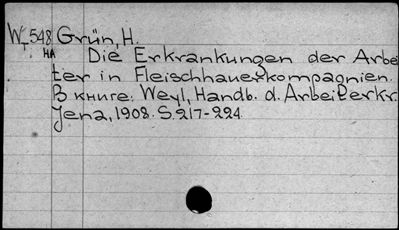 W 548 Grün, H.
T
HA Die Erkrankungen der Arbei
ter in Fleischhauerkompagnien.
В книге: Weyl, Handb. d. Arbeiterkr.
Jena, 1908. S. 217-224.